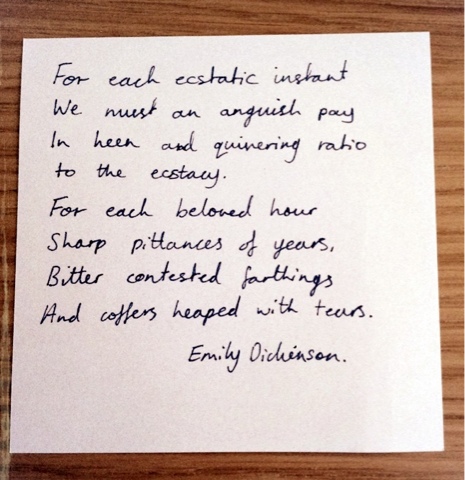 For each ecstatic instant
We must an anguish pay
In keen and quivering ratio
to the ecstacy.
For each beloved hour
Sharp pittances of years,
Bitter contested farthings
And coffers heaped with tears.
Emily Dickinson.